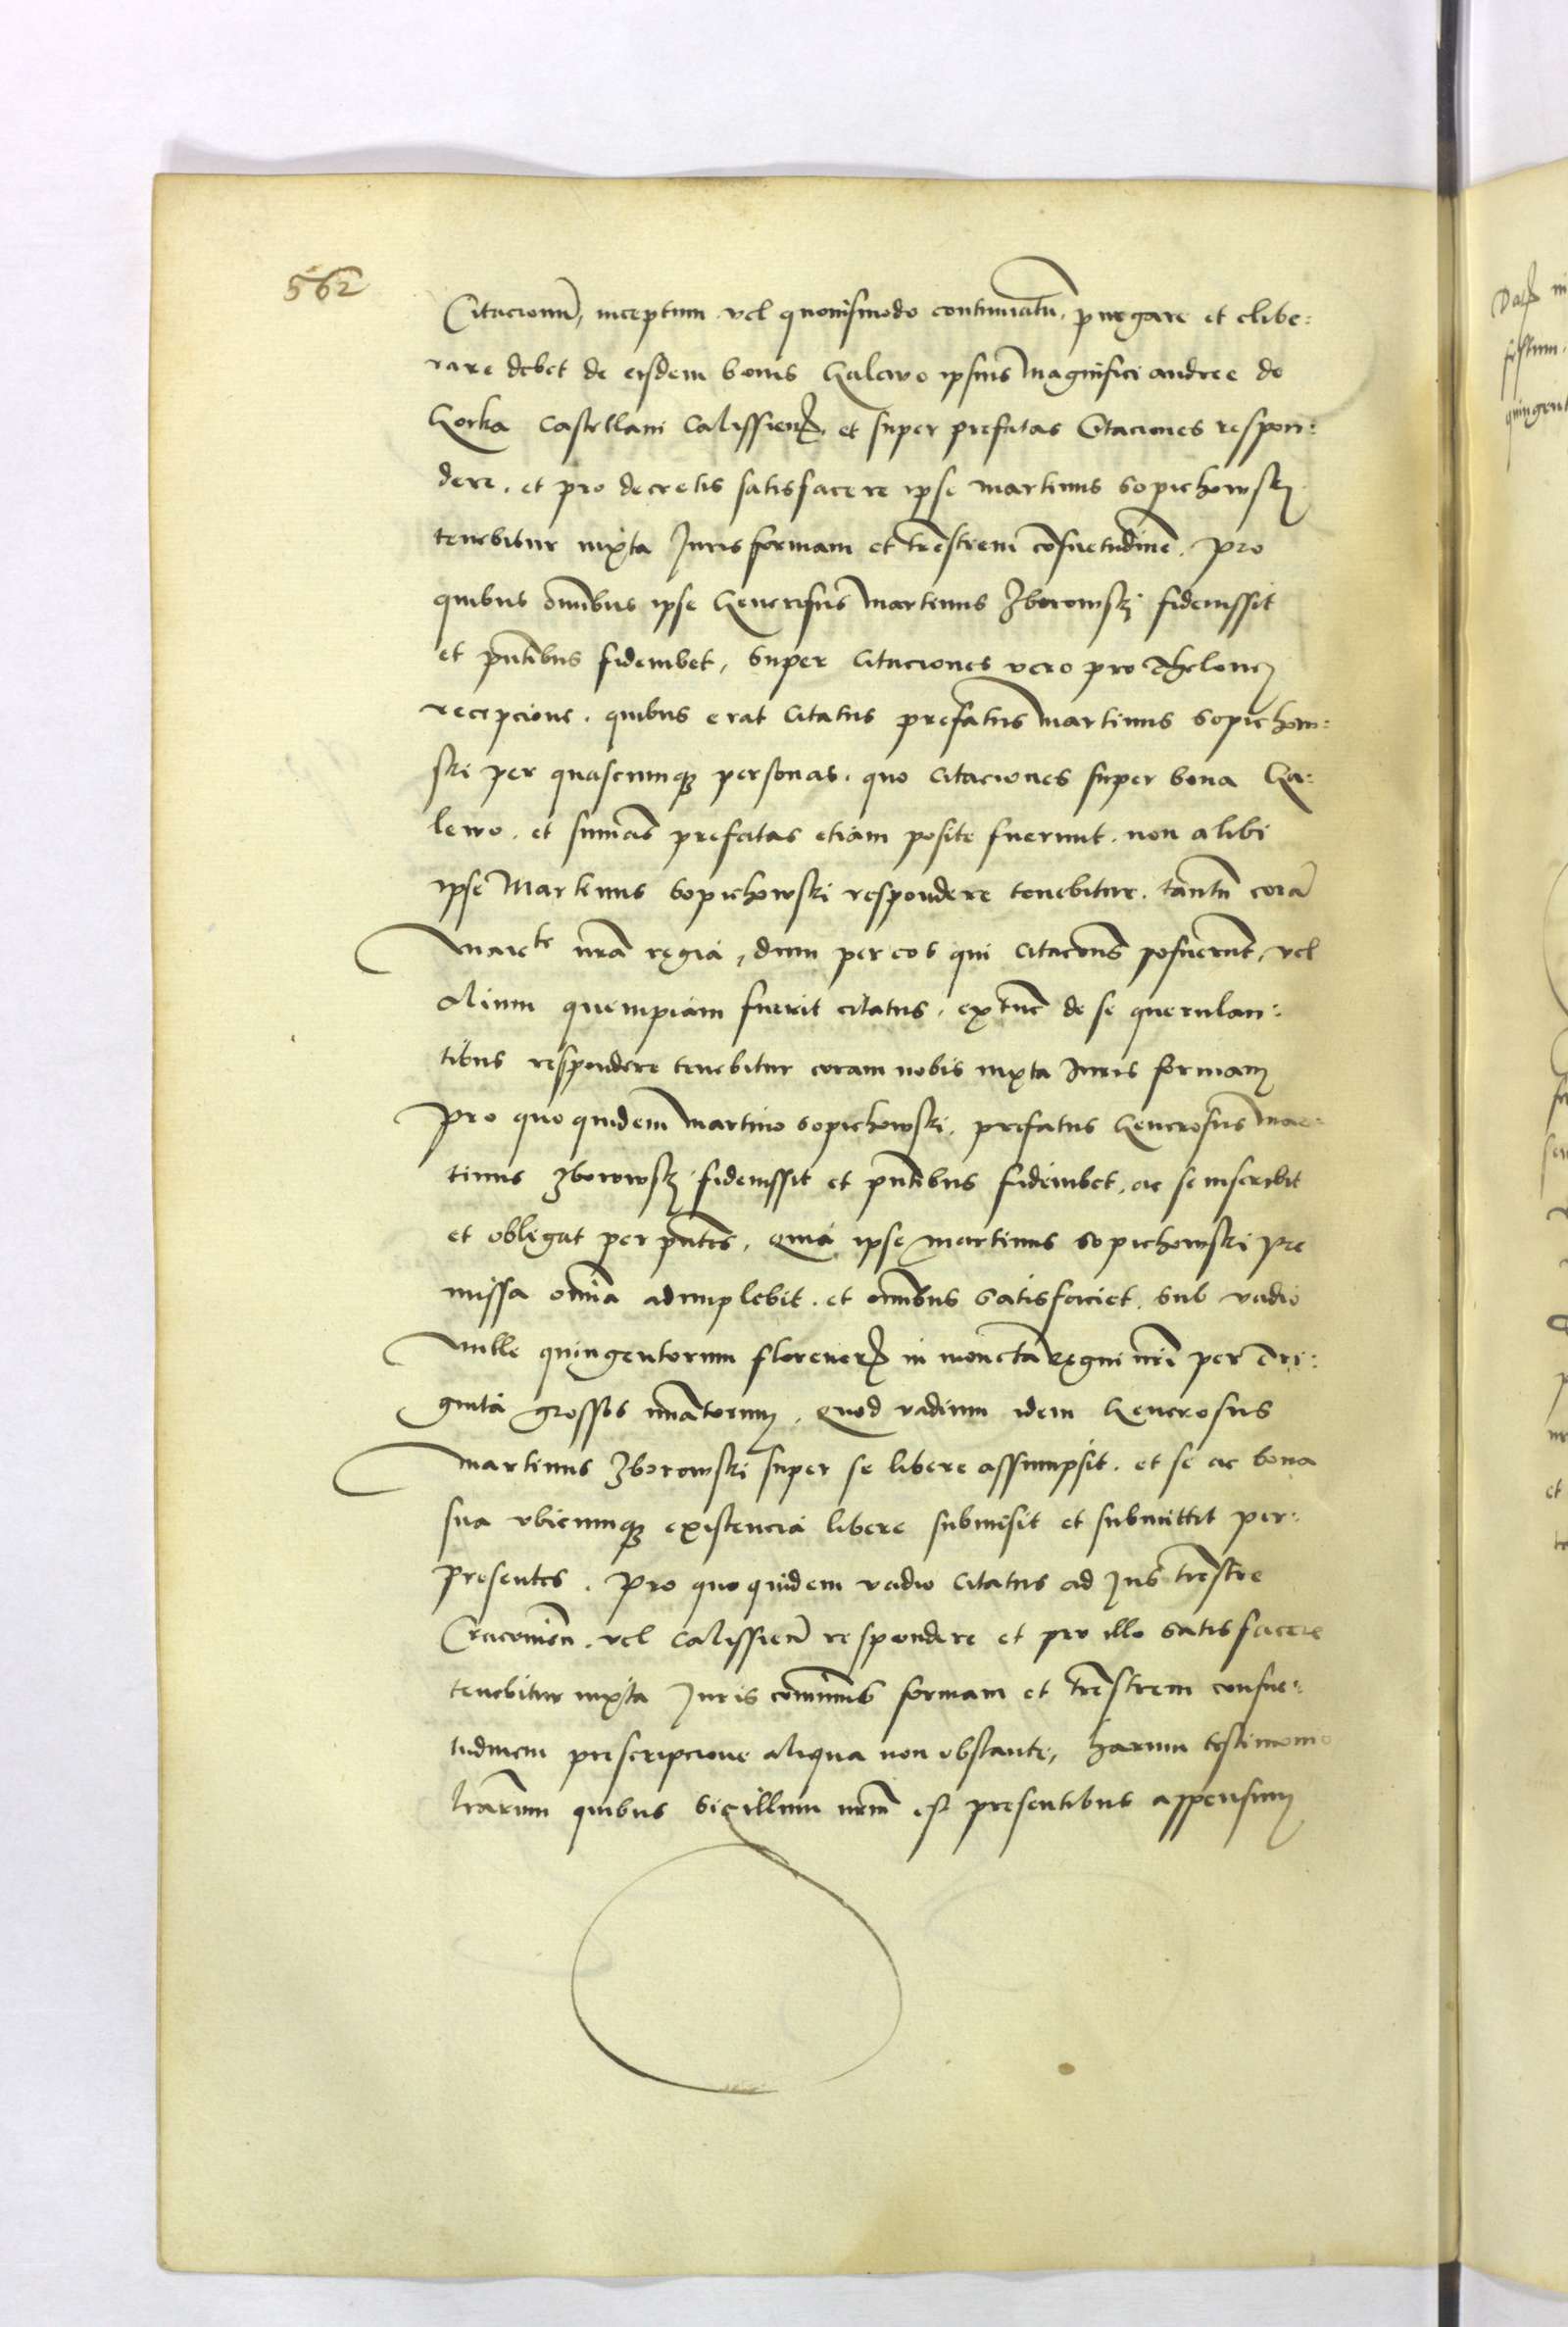 562
Citacionū, inceptum vel quovismodo continuatū, purgare et elibe:
rare debet de eisdem bonis Galewo ipsius Magnifici andree de
Gorka Castellani Calissien̄. et super prefatas Citaciones respon:
dere. et pro decretis satisfacere ipse martinus Sopichowskj
tenebitur iuxta Juris formam et tr̄estrem cōsuetudinē. pro
quibus om̄ibus ipse Generosus Martinus Zborowskj fideiussit
et pn̄tibus fideiubet, Super Citaciones vero pro Theloney
recepcione. quibus erat Citatus prefatus Martinus Sopichow:
ski per quascunq; personas. quo Citaciones super bona Ga:
lewo. et sum̄as prefatas etiam posite fuerunt. non alibi
ipse Martinus Sopichowski respondere tenebitur. tantū corā
Maiete nr̄a regia, dum per eos qui citacōns posuerunt, vel
Alium quempiam fuerit citatus, extunc de se querulan:
tibus respondere tenebitur coram nobis iuxta Juris formam
Pro quo quidem Martino Sopichowski. prefatus Generosus Mar:
tinus Zborowskj fideiussit et pn̄tibus fideiubet, ac se inscribit
et obligat per pn̄tes, Quia ipse Martinus Sopichowski pre
missa om̄ia adimplebit. et om̄ibus Satisfaciet. sub vadio
Mille quingentorum florenor̄ in moneta Regni nr̄i per tri:
ginta grossos nūatorum, Quod vadium idem Generosus
Martinus Zborowski super se libere assumpsit. et se ac bona
sua vbicunq; existencia libere submisit et submittit per
presentes. Pro quo quidem vadio citatus ad Jus tr̄estre
Cracovien̄. vel Calissien̄ respondere et pro illo satisfacere
tenebitur iuxta Juris com̄unis formam et tr̄estrem consue:
tudinem prescripcione aliqua non obstante, harum testimonio
lr̄arum quibus Sigillum nr̄m est presentibus appensum